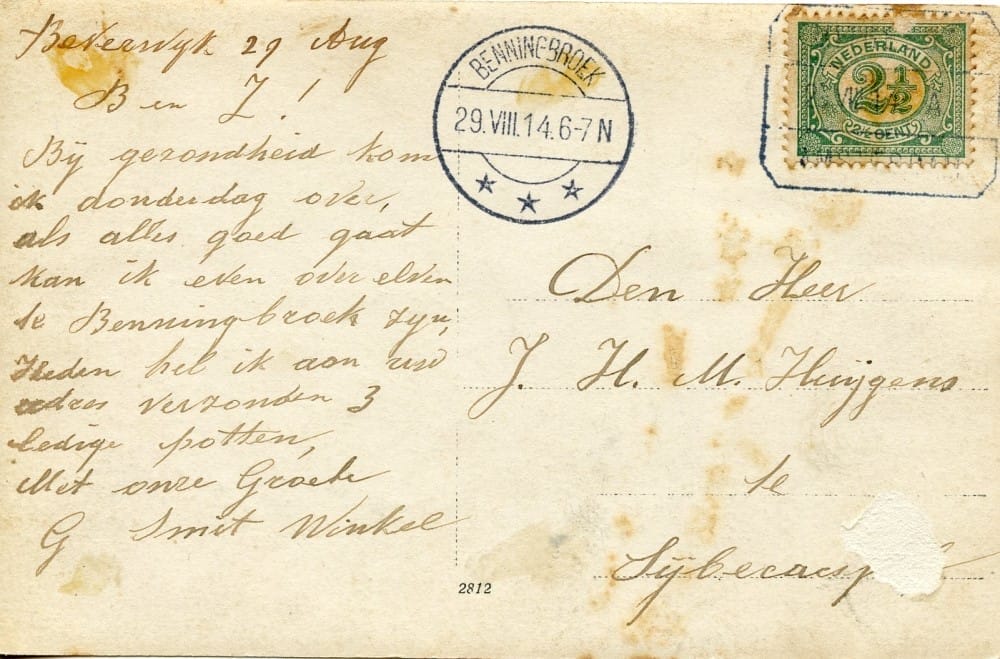 Beverwyk 29 Aug
B en Z!
Bij gezondheid kom
ik donderdag over,
als alles goed gaat
kan ik even over elven
te Benningbroek zyn,
Heden heb ik aan uw
adres verzonden 3
ledige potten,
Met onze Groete
G Smit Winkel
BENNINGBROEK
29.VIII.14.6-7N
NEDERLAND
2½
2½ CENT
Den Heer
J. H. M. Huijgens
te
2812